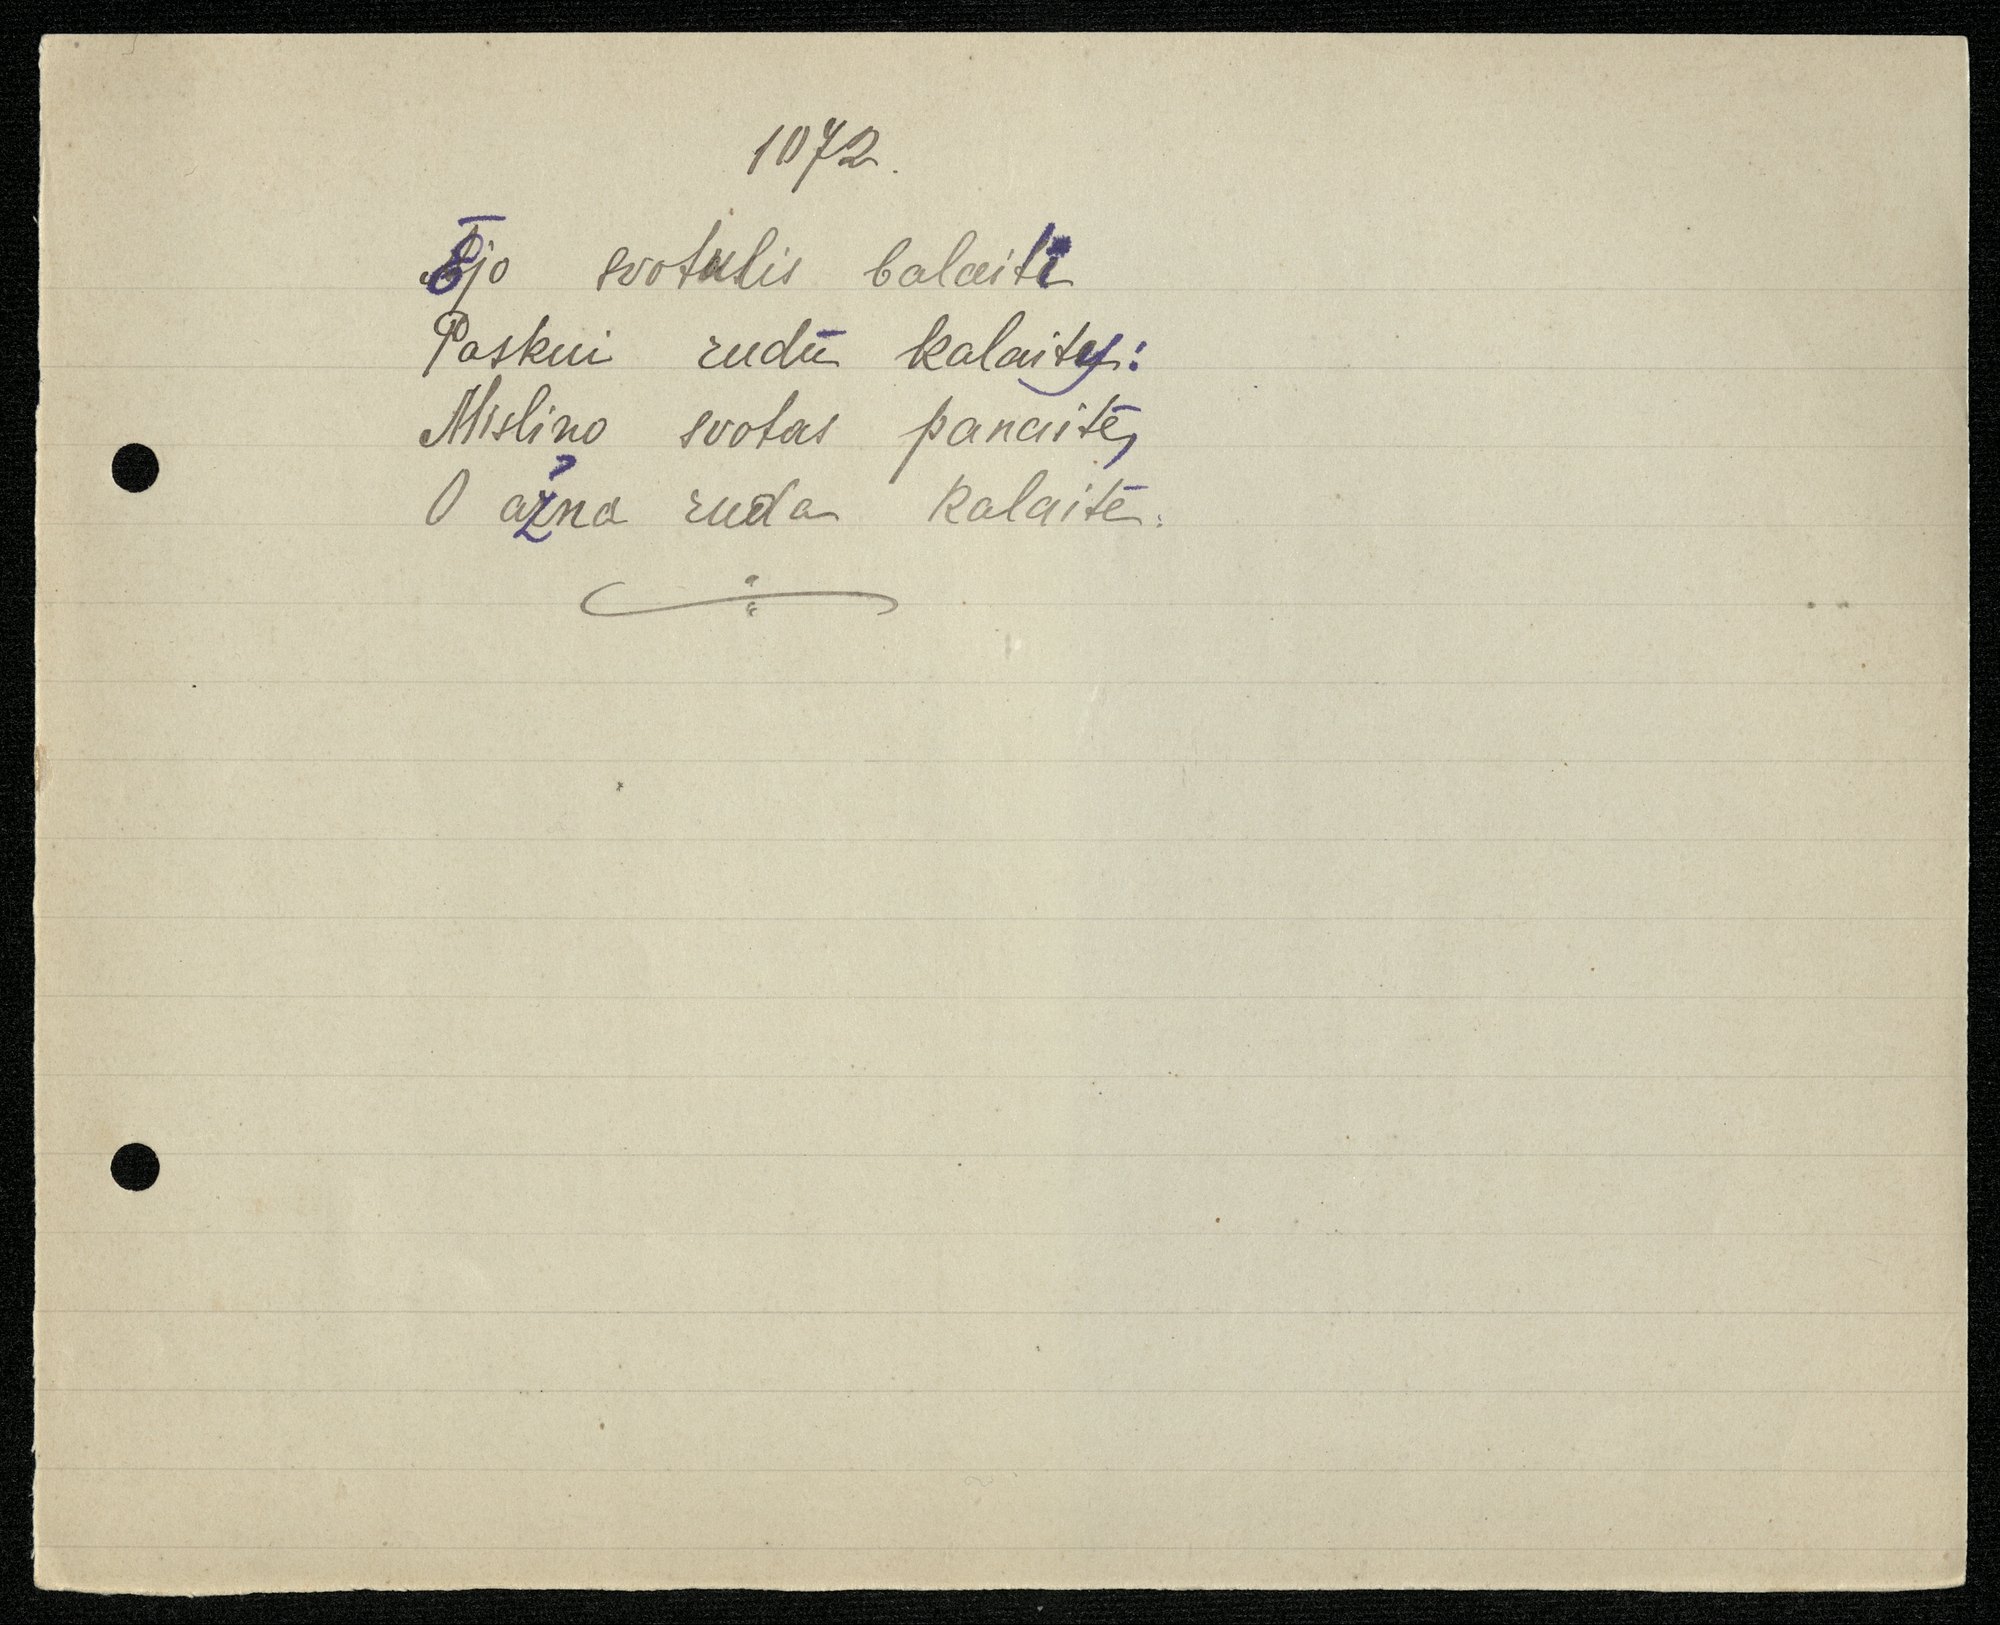 1072.
Ējo svotulis balaitē
Paskui rudū kalaitę:
Mislino svotas panaitē,
O ažna ruda kalaitē.